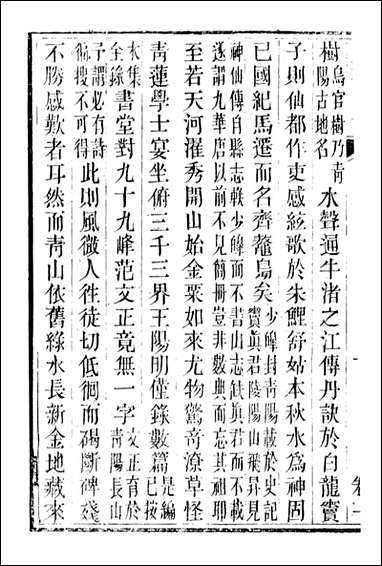 樹烏官樹乃靑陽古地名水聲通牛渚之江傳丹訣於白龍竇
子則仙都作吏感絃歌於朱鯉舒姑本秋水爲神固
已國紀馬遷而名齊鼇島矣少皥封靑陽載於史記竇眞君陵陽山飛昇見
神仙傳自縣志軼少皥而不書山志缺眞君而不載遂謂九華唐以前不見簡冊豈非數典而忘其祖耶
至若天河濯秀開山始金粟如來尤物驚奇潦草怪
靑蓮學士宴坐俯三千三界王陽明僅錄數篇是編已按
本集全錄書堂對九十九峰范文正竟無一字文正育於靑陽長山
予謂必有詩徧搜不可得此則風微人徃徒切低徊而碣斷碑殘
不勝感歎者耳然而靑山依舊綠水長新金地藏來
卷